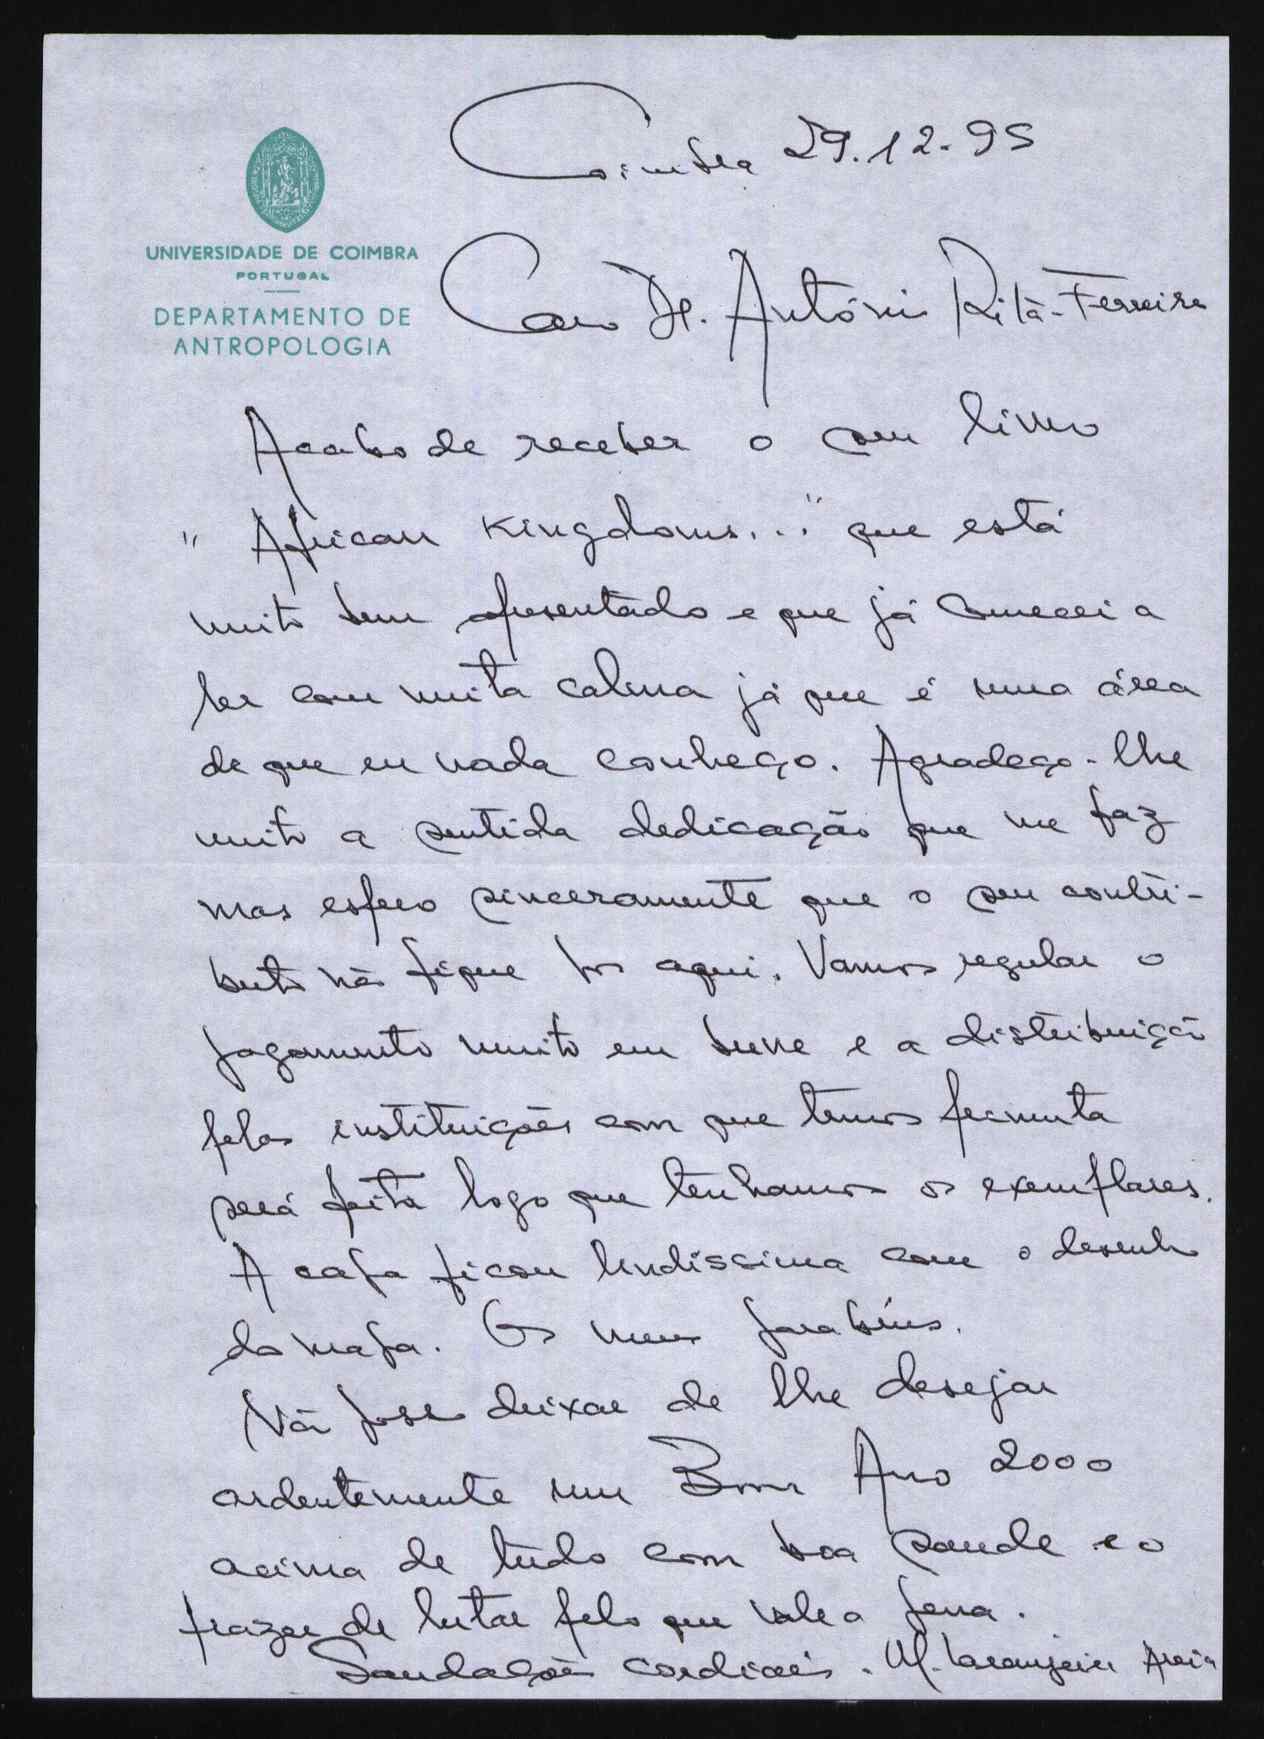 Coimbra 29.12.99
UNIVERSIDADE DE COIMBRA
PORTUGAL
DEPARTAMENTO DE
ANTROPOLOGIA
Caro Dr. António Rita-Ferreira
Acabo de receber o seu livro
"African Kingdoms..." que está
muito bem apresentado e que já comecei a
ler com muita calma já que é uma área
de que eu nada conheço. Agradeço-lhe
muito a sentida dedicação que me faz
mas espero sinceramente que o seu contri-
buto não fique por aqui. Vamos regular o
pagamento muito em breve e a distribuição
pelas instituições com que temos permuta
será feita logo que tenhamos os exemplares.
A capa ficou lindíssima com o desenho
do mapa. Os meus parabéns.
Não posso deixar de lhe desejar
ardentemente um Bom Ano 2000
acima de tudo com boa saude e o
prazer de lutar pelo que vale a pena.
Saudações cordiais. M. Laranjeira Areia